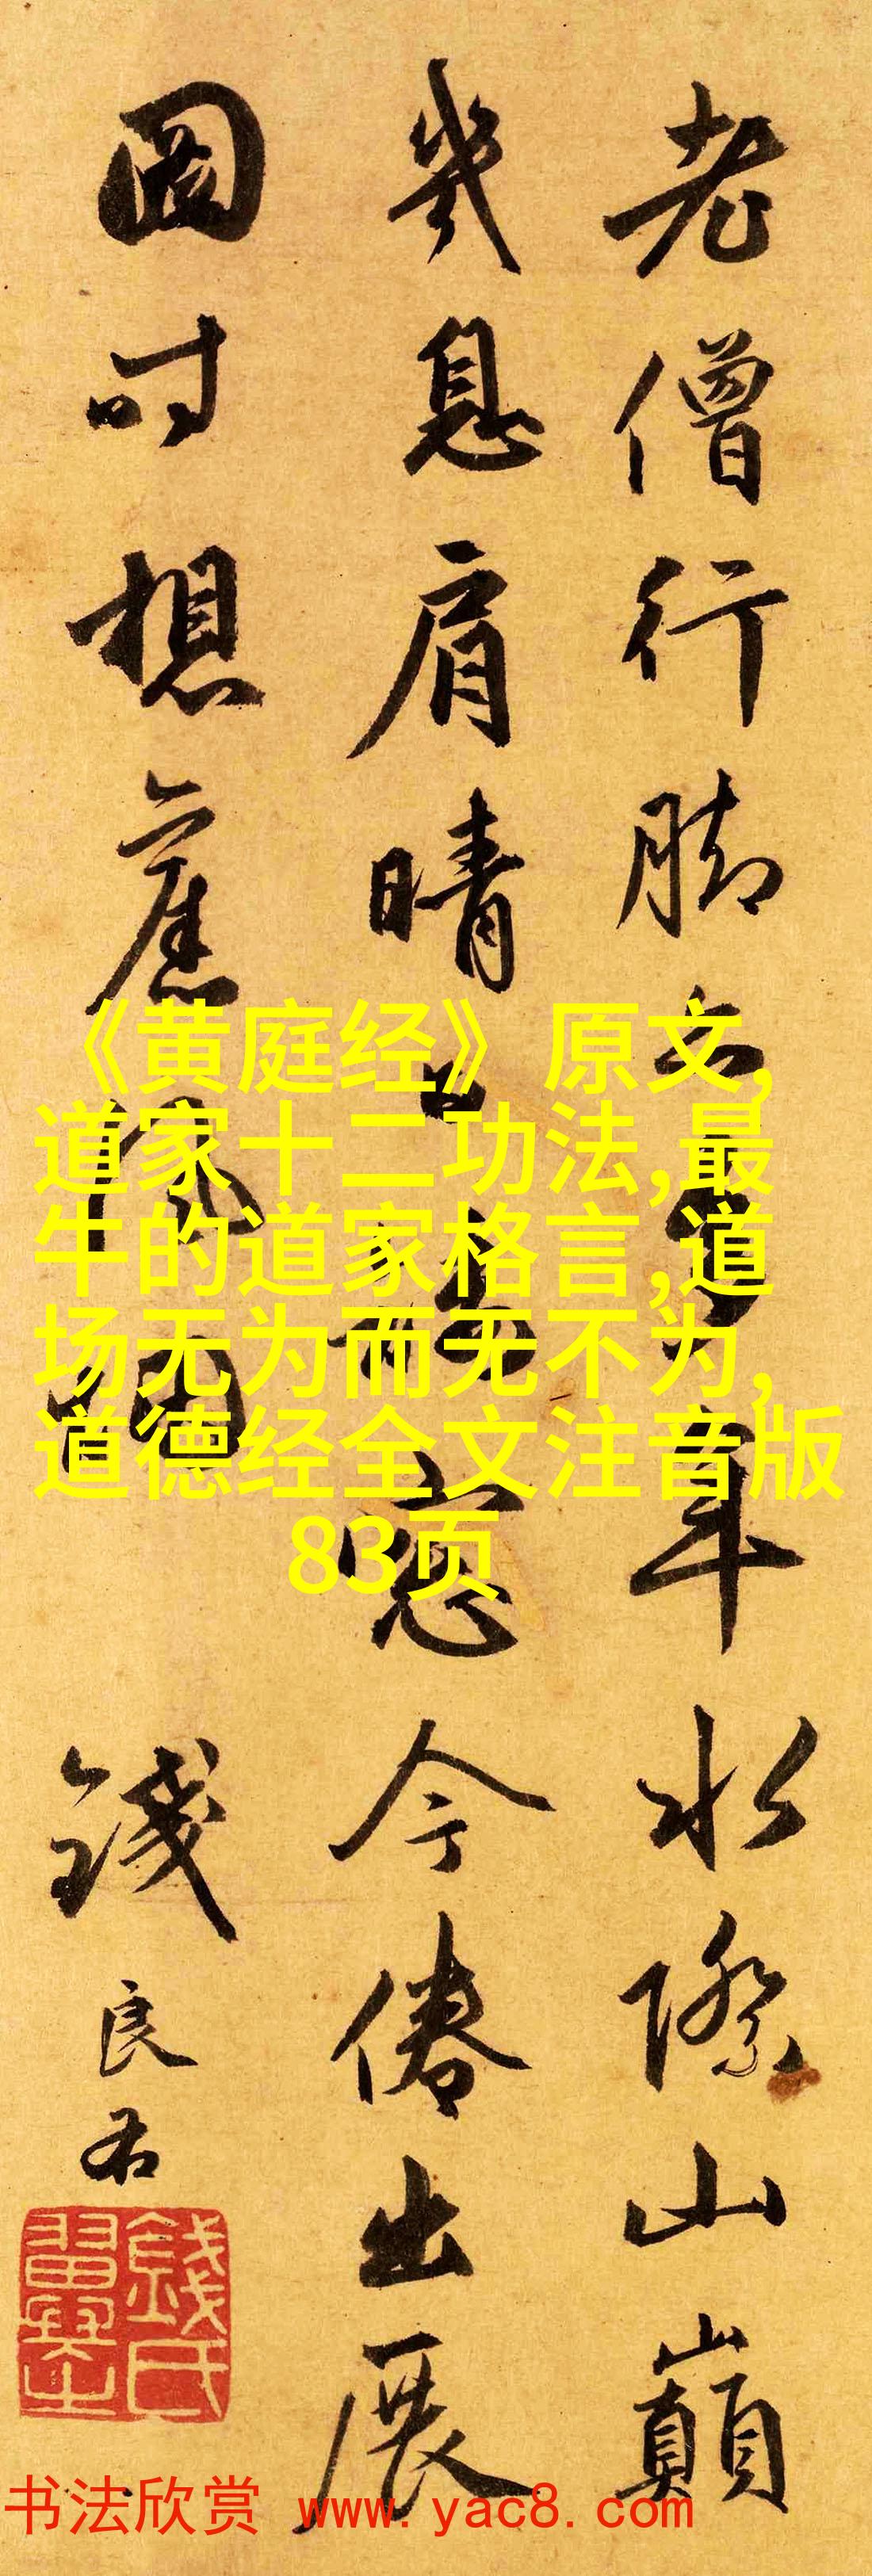 老僧行脚年水際山巔
幾息肩晴窓今倦出展
圖時想舊
錢良右
錢氏翼之
《黄庭经》原文,
道家十二功法,最
牛的道家格言,道
场无为而无不为,
道德经全文注音版
83页
书法欣赏 www.yac8.com